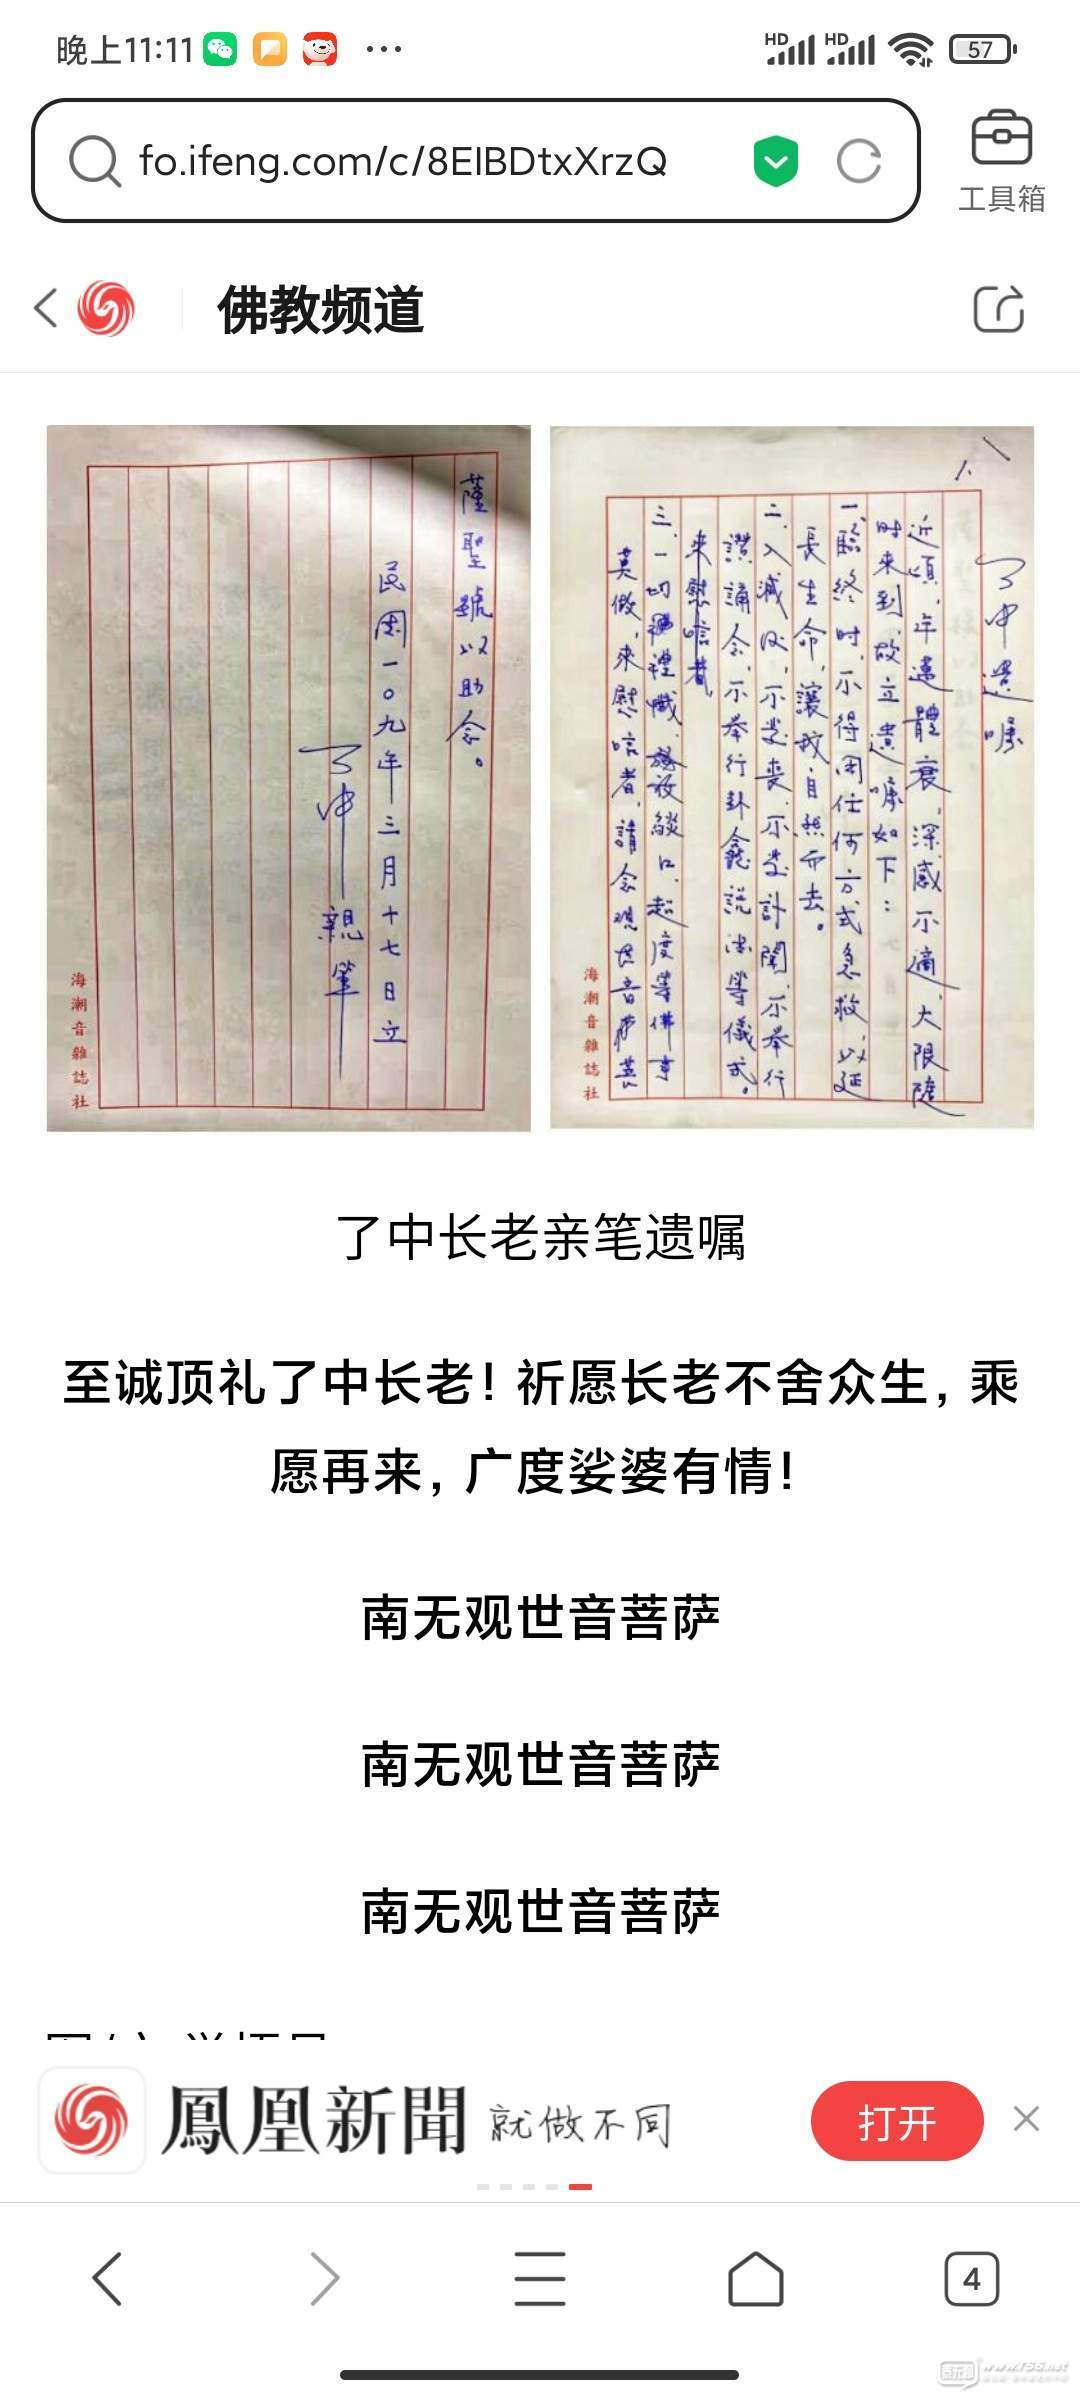 晚上11:11
HD
HD
57
fo.ifeng.com/c/8EIBDtxXrzQ
工具箱
佛教频道
了中遺囑
近頃,年邁體衰,深感不適,大限隨
時來到,故立遺囑如下:
一、臨終時,不得用任何方式急救,以延
長生命,讓我自然而去。
二、入滅後,不發喪,不發訃聞,不舉行
讚誦念,不举行卦龕説法等儀式。
來慰唁者,
三、一切禮懺、放燄口、超度等佛事
莫做,來慰唁者,請念觀世音菩
海潮音雜誌社
薩聖號以助念。
民國一〇九年三月十七日立
了中親筆
海潮音雜誌社
了中长老亲笔遗嘱
至诚顶礼了中长老!祈愿长老不舍众生,乘
愿再来,广度娑婆有情!
南无观世音菩萨
南无观世音菩萨
南无观世音菩萨
鳳凰新聞
就做不同
打开
4
www.156.net